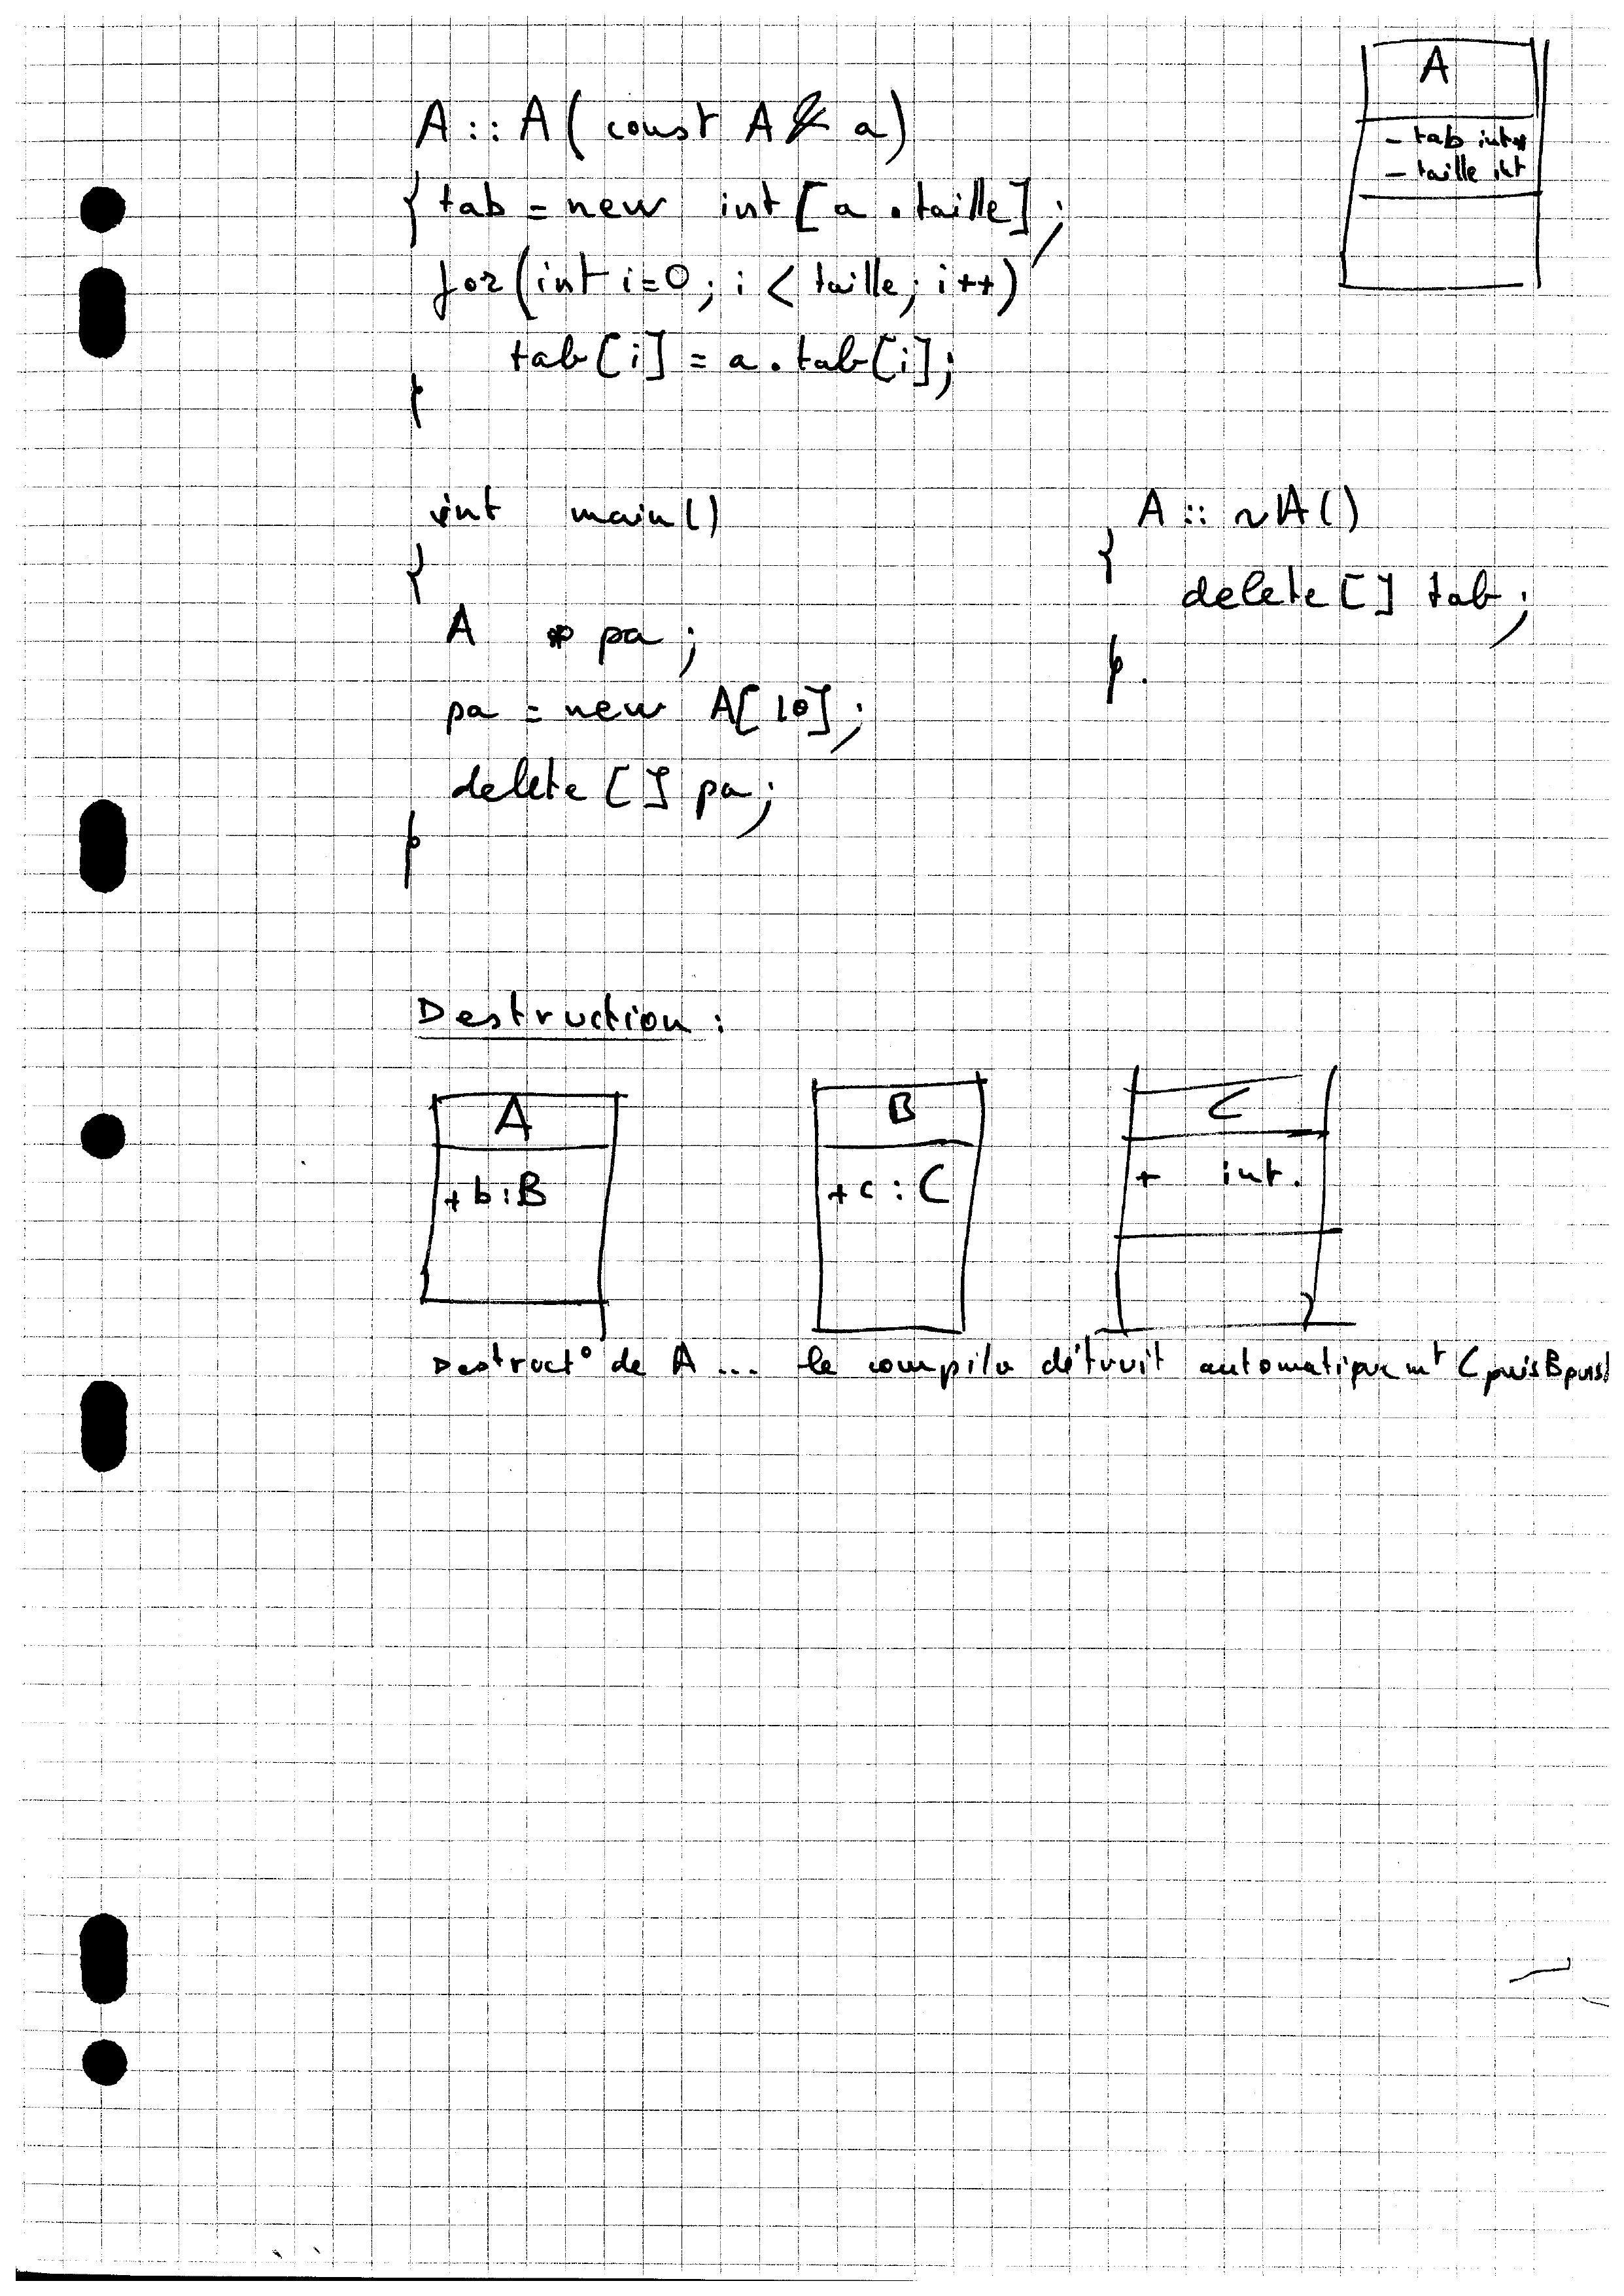 A
- tab int*
- taille int
A :: A ( const A & a )
{ tab = new int [ a . taille ] ;
for ( int i=0 ; i < taille ; i++ )
tab [ i ] = a . tab [ i ] ;
}
int main ( )
{
A * pa ;
pa = new A[ 10 ] ;
delete [ ] pa ;
}
A :: ~A ( )
{
delete [ ] tab ;
} .
Destruction :
A
+ b : B
B
+ c : C
C
+ int .
Destruct° de A ... le compilo détruit automatiquemt C puis B puis